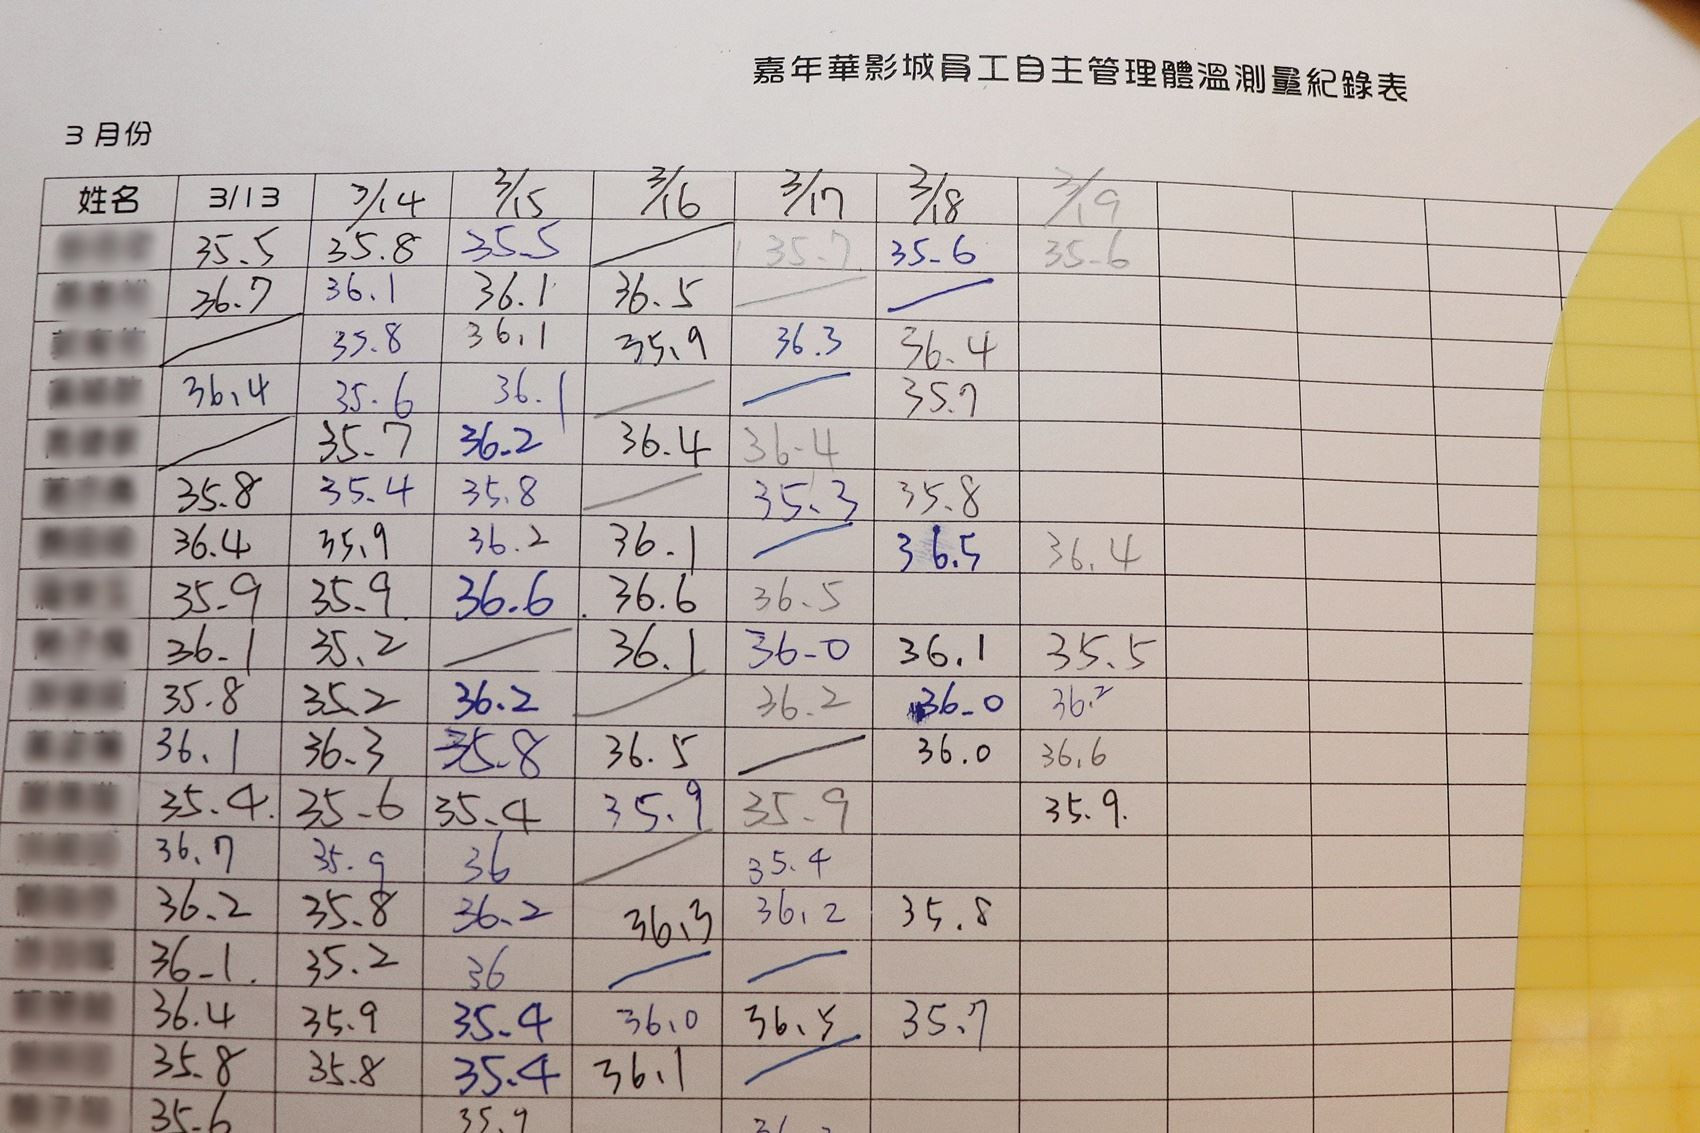 嘉年華影城員工自主管理體溫測量紀錄表
3月份
姓名 3/13 3/14 3/15 3/16 3/17 3/18 3/19
35.5 35.8 35.5 35.7 35.6 35.6
36.7 36.1 36.1 36.5
35.8 36.1 35.9 36.3 36.4
36.4 35.6 36.1 35.7
35.7 36.2 36.4 36.4
35.8 35.4 35.8 35.3 35.8
36.4 35.9 36.2 36.1 36.5 36.4
35.9 35.9 36.6 36.6 36.5
36.1 35.2 36.1 36.0 36.1 35.5
35.8 35.2 36.2 36.2 36.0 36.2
36.1 36.3 35.8 36.5 36.0 36.6
35.4 35.6 35.4 35.9 35.9 35.9
36.7 35.9 36 35.4
36.2 35.8 36.2 36.3 36.2 35.8
36.1 35.2 36
36.4 35.9 35.4 36.0 36.5 35.7
35.8 35.8 35.4 36.1
35.6 35.9